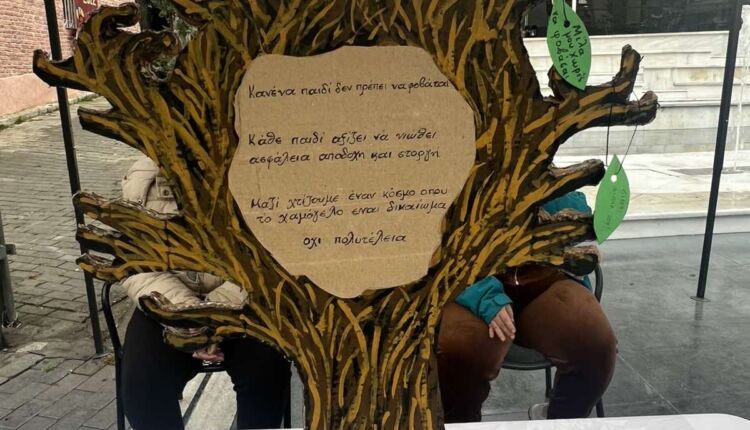 Κανένα παιδί δεν πρέπει να φοβάται
Κάθε παιδί αξίζει να νιώθει
ασφάλεια αποδοχή και στοργή
Μαζί χτίζουμε έναν κόσμο οπου
το χαμόγελο ειναι δικαίωμα
οχι πολυτέλεια
Μίλα
μου χωρίς
να φοβάσαι